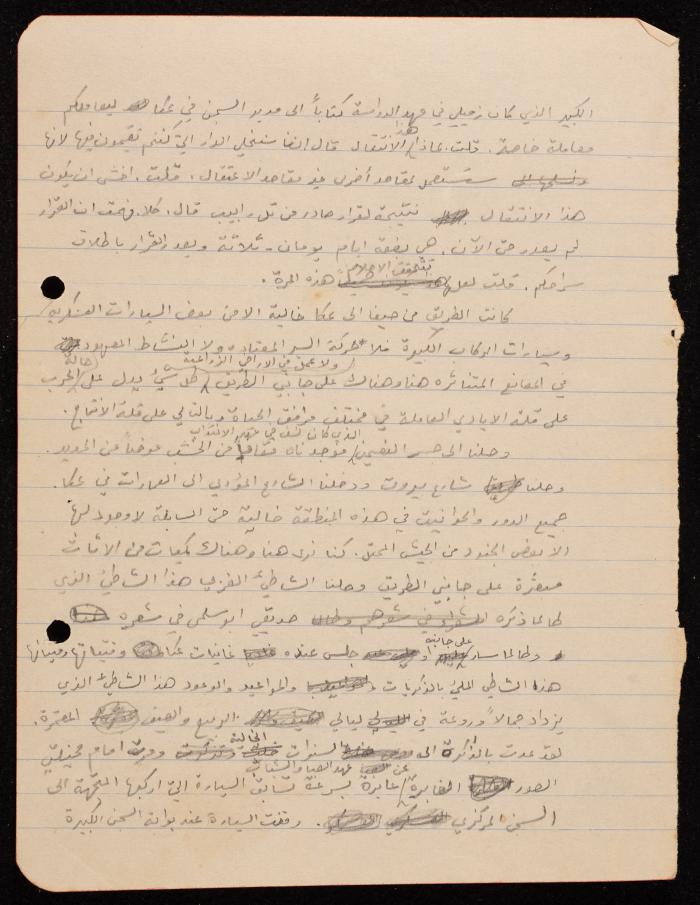 الكبير الذي كان زميلي في عهد الدراسة كتاباً الى مدير السجن في عكا ليعاملكم
معاملة خاصة. قلت. لماذا هذا الانتقال قال اننا سنخلي الدار التي كنتم تقيمون فيها لانها
ستستعمل لمقاصد أخرى غير مقاصد الاعتقال. قلت. اخشى ان يكون
هذا الانتقال نتيجة لقرار صادر من تل ابيب قال. كلا. فهمت ان القرار
لم يصدر حتى الآن. هي بضعة ايام يومان - ثلاثة ويصدر القرار باطلاق
سراحكم. قلت لعل تتحقق الاحلام هذه المرة.
كانت الطريق من حيفا الى عكا خالية الا من بعض السيارات العسكرية
وسيارات الركاب الكبيرة فلا حركة السير المعتاده ولا النشاط المعهود
ولا عمل في الاراضي الزراعية
في المصانع المتناثره هنا وهناك على جانبي الطريق كل شيء يدل على حالة الحرب
على قلة الايادي العاملة في مختلف مرافق الحياة وبالتالي على قلة الانتاج.
الذي كان نسف في عهد الانتداب
وصلنا الى جسر النعمين فوجدناه مقاماً من الخشب عوضاً عن الحديد.
وصلنا شارع بيروت ودخلنا الشارع المؤدي الى العمارات في عكا.
جميع الدور والحوانيت في هذه المنطقة خالية حتى السابلة لا وجود لها
الا بعض الجنود من الجيش المحتل. كنا نرى هنا وهناك كميات من الاثاث
مبعثرة على جانبي الطريق وصلنا الشاطئ الغربي هذا الشاطئ الذي
طالما ذكره صديقي ابو سلمى في شعره
وطالما سار على جانبيه و جلس عنده غانيات عكا وفتيانها وفتياتها
هذا الشاطي المليء بالذكريات والمواعيد والوعود هذا الشاطئ الذي
يزداد جمالاً وروعة في ليالي الربيع والصيف المقمرة.
لقد عدت بالذاكرة الى السنوات الخالية ومرت امام مخيلتي
عن عهد الصبا والشباب
الصور الغابرة عابرة بسرعة تسابق السيارة التي اركبها المتجهة الى
السجن المركزي. وقفت السيارة عند بوابة السجن الكبيرة